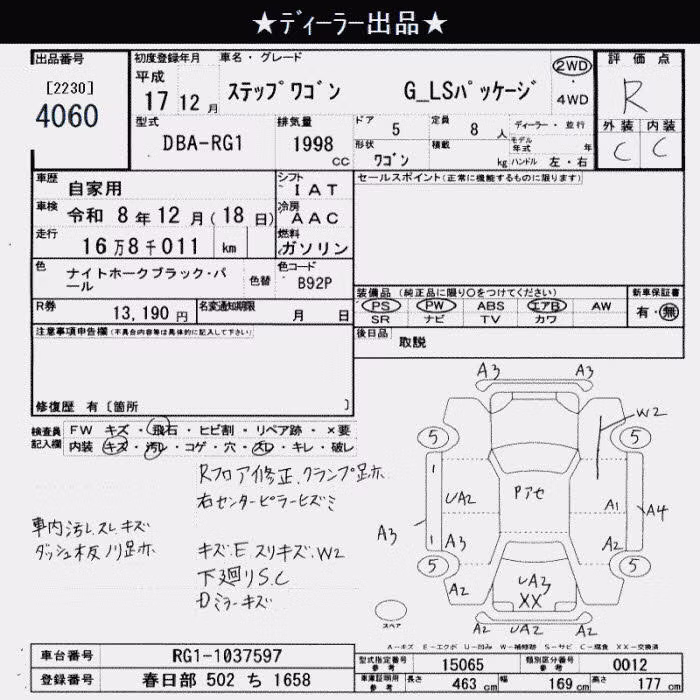 ★ディーラー出品★
出品番号
[2230]
4060
初度登録年月
平成
17 12 月
車名・グレード
ステップワゴン G_LSパッケージ
2WD
・
4WD
評価点
R
外装 内装
C C
型式
DBA-RG1
排気量
1998
cc
ドア 5
定員 8 人
形状
ワゴン
積載
kg
ディーラー・並行
モデル年式 年
ハンドル 左・右
車歴 自家用
車検 令和 8 年 12 月 ( 18 日)
走行 16 万 8 千 011 km
色 ナイトホークブラック・パール
色替
シフト
IAT
冷房
AAC
燃料
ガソリン
色コード
B92P
R券 13,190 円
名変通知期限 月 日
セールスポイント(正常に機能するものに限ります)
装備品 (純正品に限り○をつけてください)
PS PW ABS エアB AW
SR ナビ TV カワ
新車保証書
有・無
後日品 取説
注意事項申告欄 (不具合内容等は具体的に記入して下さい)
修復歴 有〔箇所 〕
検査員記入欄
FW キズ・飛石・ヒビ割・リペア跡・×要
内装 キズ・汚レ・コゲ・穴・スレ・キレ・破レ
Rフロア修正、クランプ足ホ
右センターピラーヒズミ
車内汚レ、スレ、キズ
ダッシュ板ノリ足ホ
キズ.E スリキズ.W2
下廻リS.C
Dミラーキズ
A3 A3
W2
5 5
UA2 Pアセ A1 A4
A3 A3 A2
5 5
A2 UA3 A2
XX
A2 UA2 A2
スペア
A-キズ E-エクボ U-凹み W-補修跡 S-サビ C-腐食 XX-交換済
車台番号 RG1-1037597
登録番号 春日部 502 ち 1658
型式指定番号 参考 15065
類別区分番号 参考 0012
車庫証明用 参考 長さ 463 cm 幅 169 cm 高さ 177 cm